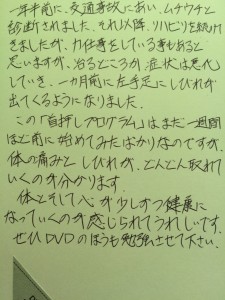 一年半前に、交通事故にあい、ムチウチと
診断されました。それ以降、リハビリを続けて
きましたが、力仕事をしている事もあると
思いますが、治るどころか、症状は悪化
していき、一カ月前に左手足にしびれが
出てくるようになりました。
この「首押しプログラム」はまだ一週間
ほど前に始めてみたばかりなのですが、
体の痛みとしびれが、どんどん取れて
いくのが分かります。
体とそして心が少しずつ健康に
なっていくのが感じられてうれしいです。
ぜひDVDのほうも勉強させて下さい。